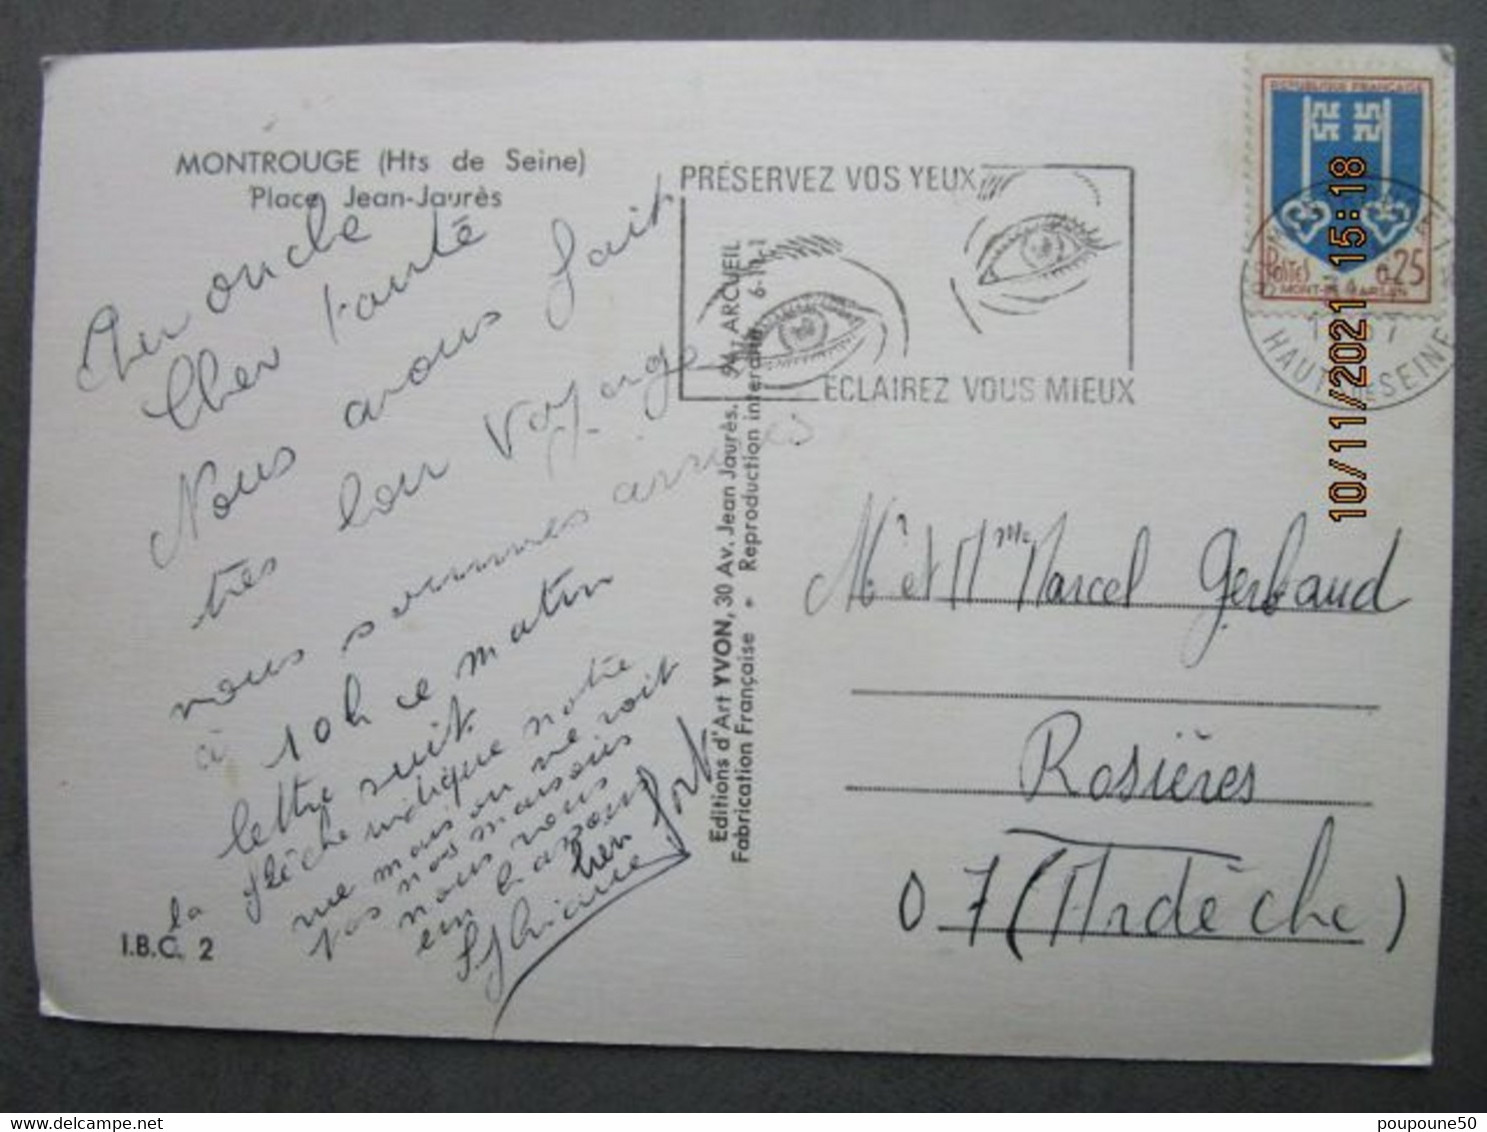 MONTROUGE (Hts de Seine)
Place Jean-Jaurès
Cher oncle
Cher tanté
Nous avons fait
très bon voyage
nous sommes arrivés
à 10h ce matin
lettre suit.
la flèche indique notre
rue mais on ne voit
pas nos maisons
nous vous
embrassons
bien fort
I.B.C. 2
Editions d'Art YVON, 30 Av. Jean Jaurès. 94 ARCUEIL
Fabrication Française • Reproduction interdite 6-11
PRÉSERVEZ VOS YEUX
ECLAIREZ VOUS MIEUX
REPUBLIQUE FRANÇAISE
POSTES 0,25
MONT-DE-MARSAN
HAUTS DE SEINE
10/11/2021 15:18
Mr et Mme Marcel Gerbaud
Rosières
07 (Ardèche)
poupoune50